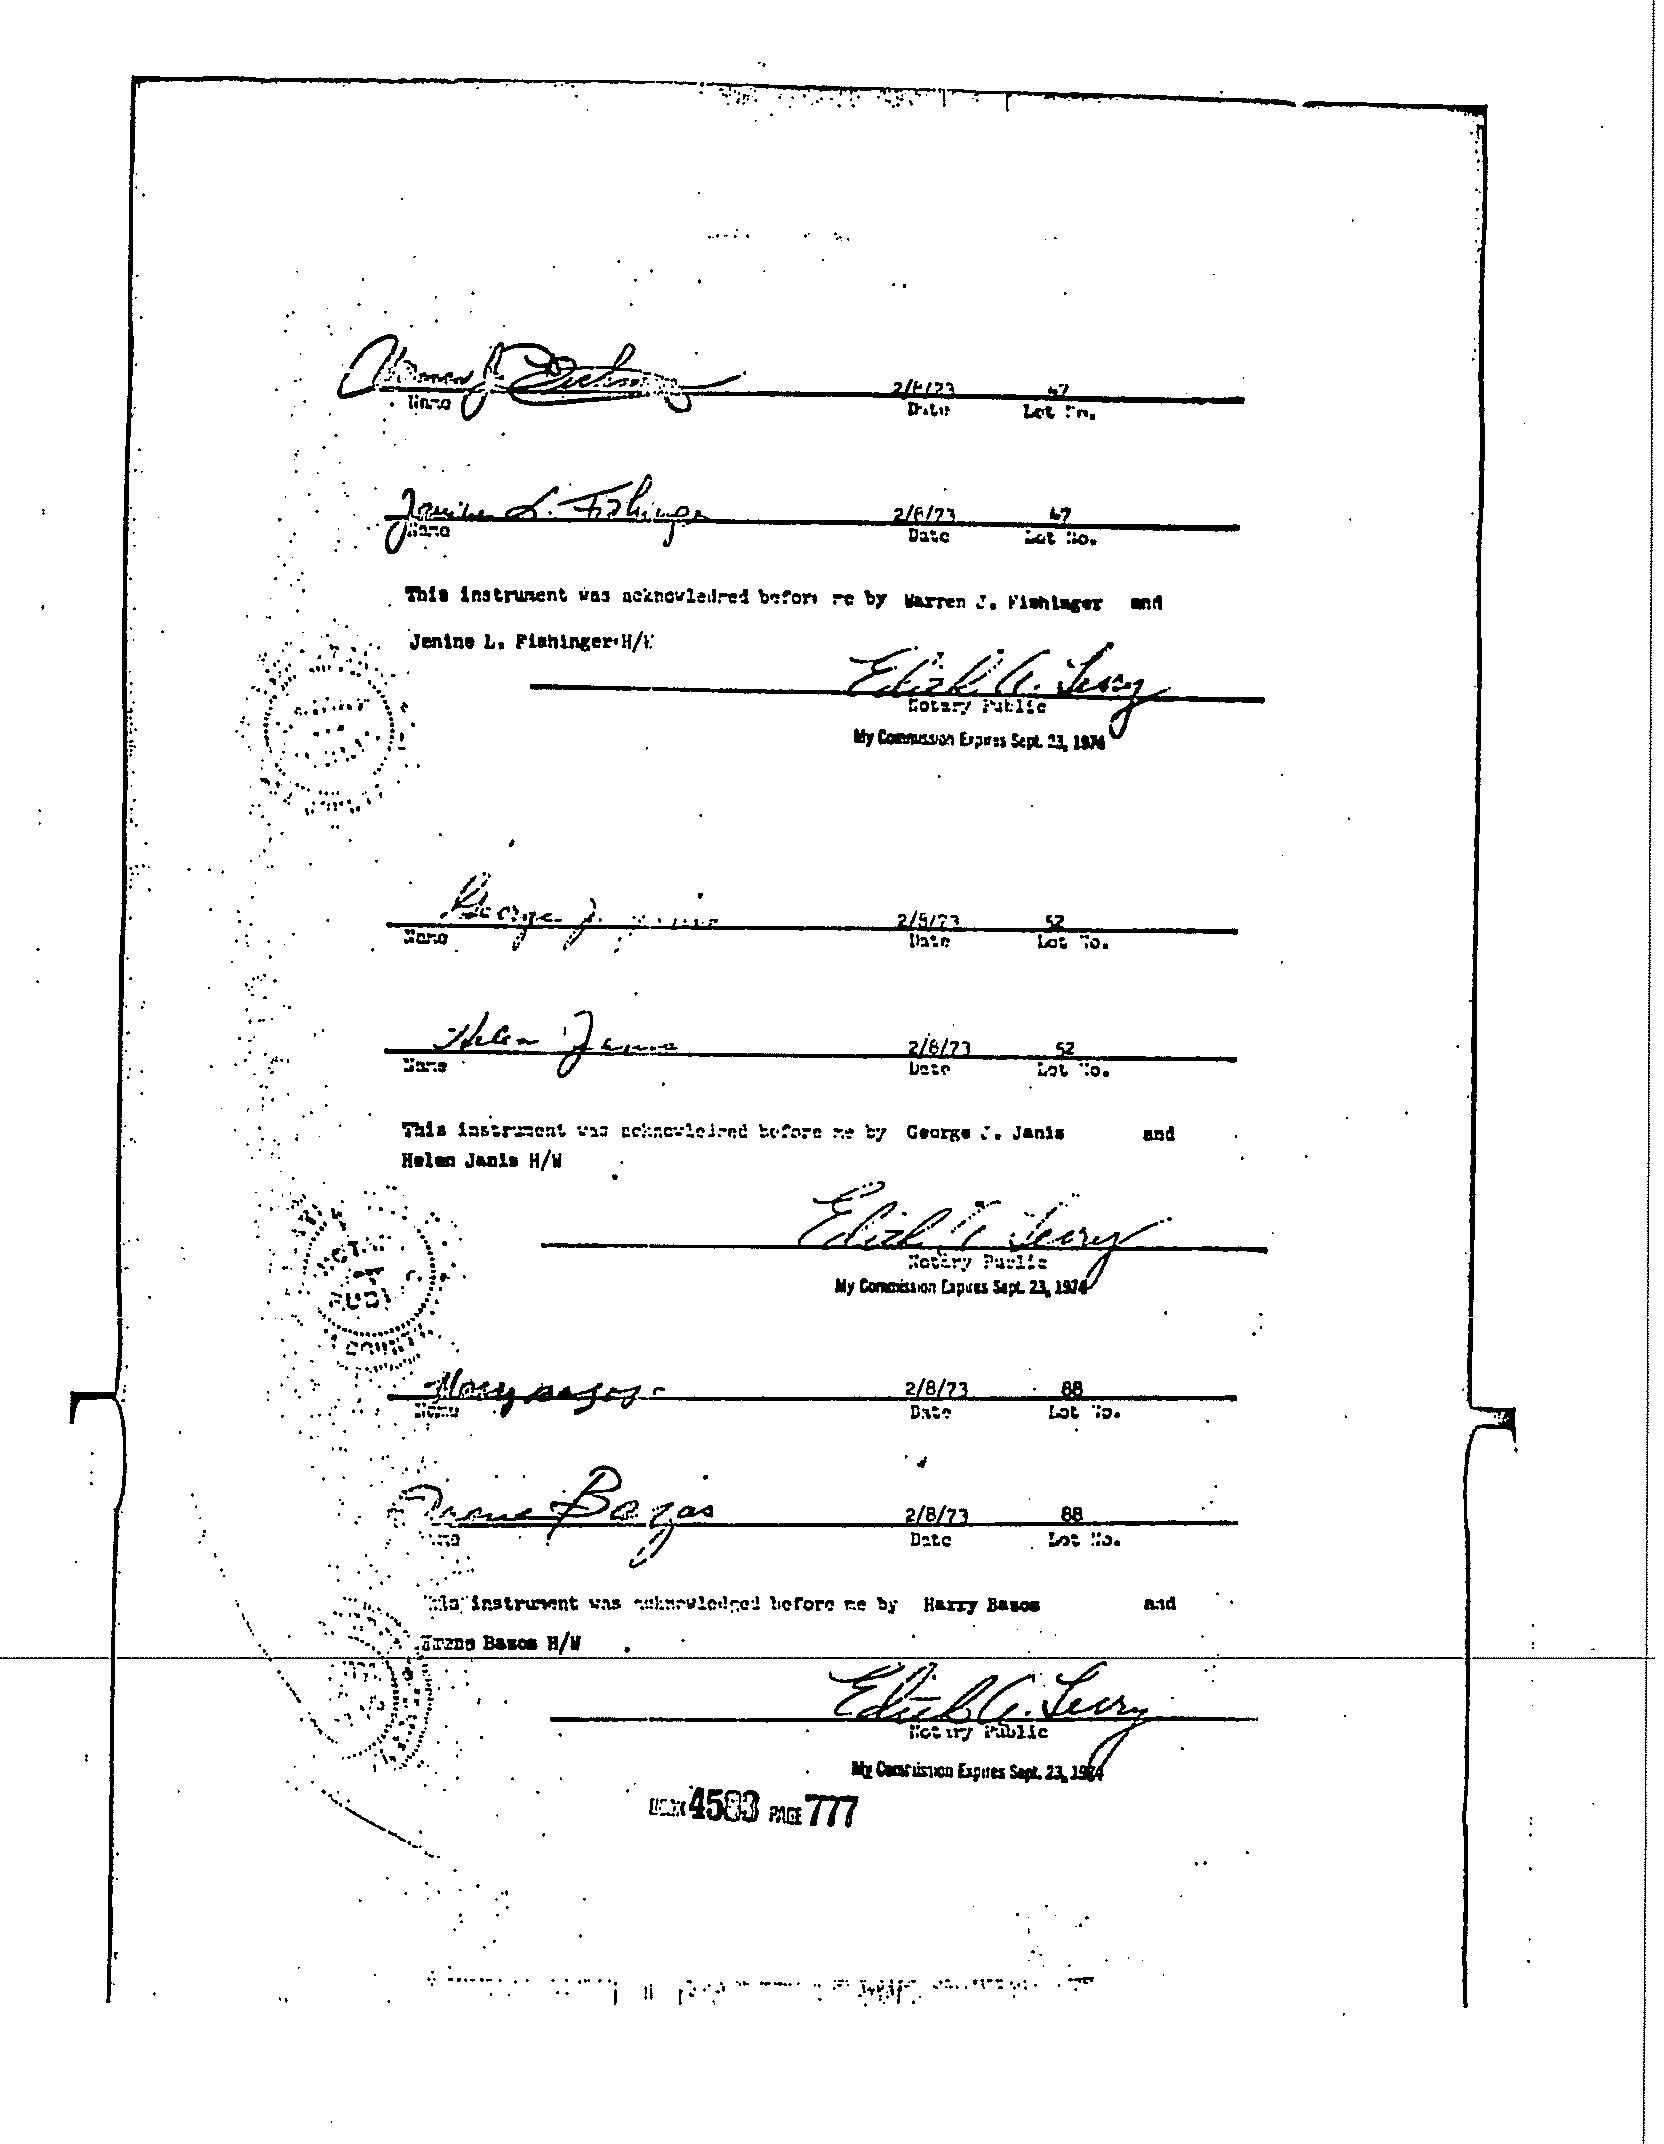 Warren J. Fishinger 2/8/73 47
Name Date Lot No.
Jenine L. Fishinger 2/8/73 47
Name Date Lot No.
This instrument was acknowledged before me by Warren J. Fishinger and
Jenine L. Fishinger H/W
Edith A.
Notary Public
My Commission Expires Sept. 23, 1974
George J. Janis 2/5/73 52
Name Date Lot No.
Helen Janis 2/8/73 52
Name Date Lot No.
This instrument was acknowledged before me by George J. Janis and
Helen Janis H/W
Edith A.
Notary Public
My Commission Expires Sept. 23, 1974
2/8/73 88
Name Date Lot No.
Irene Bazos 2/8/73 88
Name Date Lot No.
This instrument was acknowledged before me by Harry Bazos and
Irene Bazos H/W
Edith A.
Notary Public
My Commission Expires Sept. 23, 1974
BOOK 4583 PAGE 777